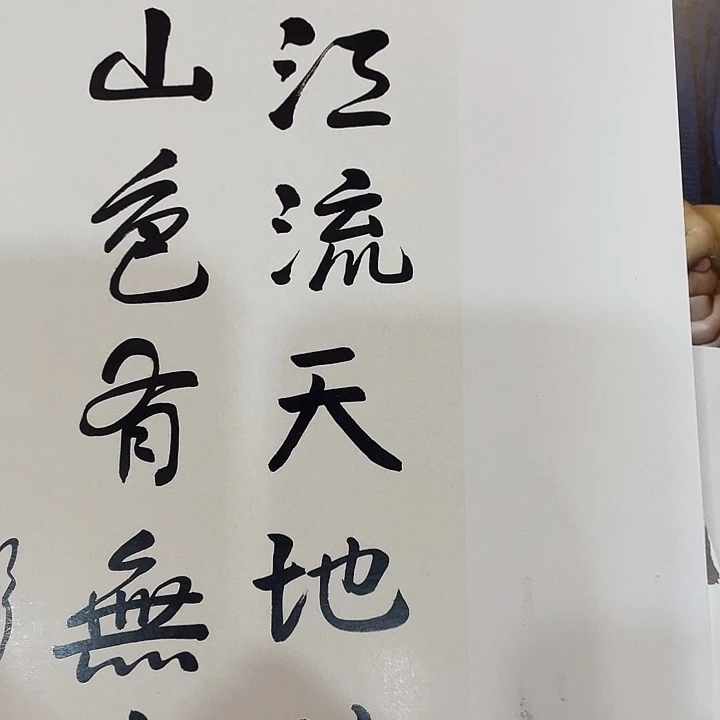 江流天地
山色有無